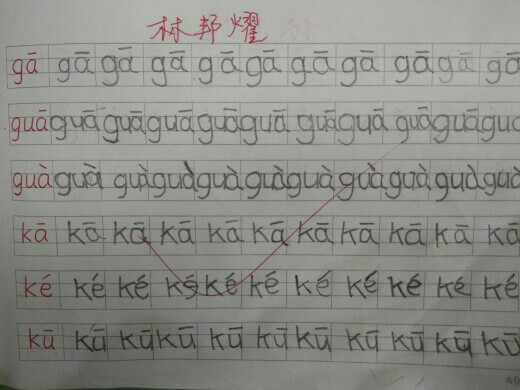 林邦耀
gā gā gā gā gā gā gā gā gā gā gā
guā guā guā guā guā guā guā guā guā guā
guà guà guà guà guà guà guà guà guà guà
kā kā kā kā kā kā kā kā kā kā kā
ké ké ké ké ké ké ké ké ké ké ké
kū kū kū kū kū kū kū kū kū kū kū